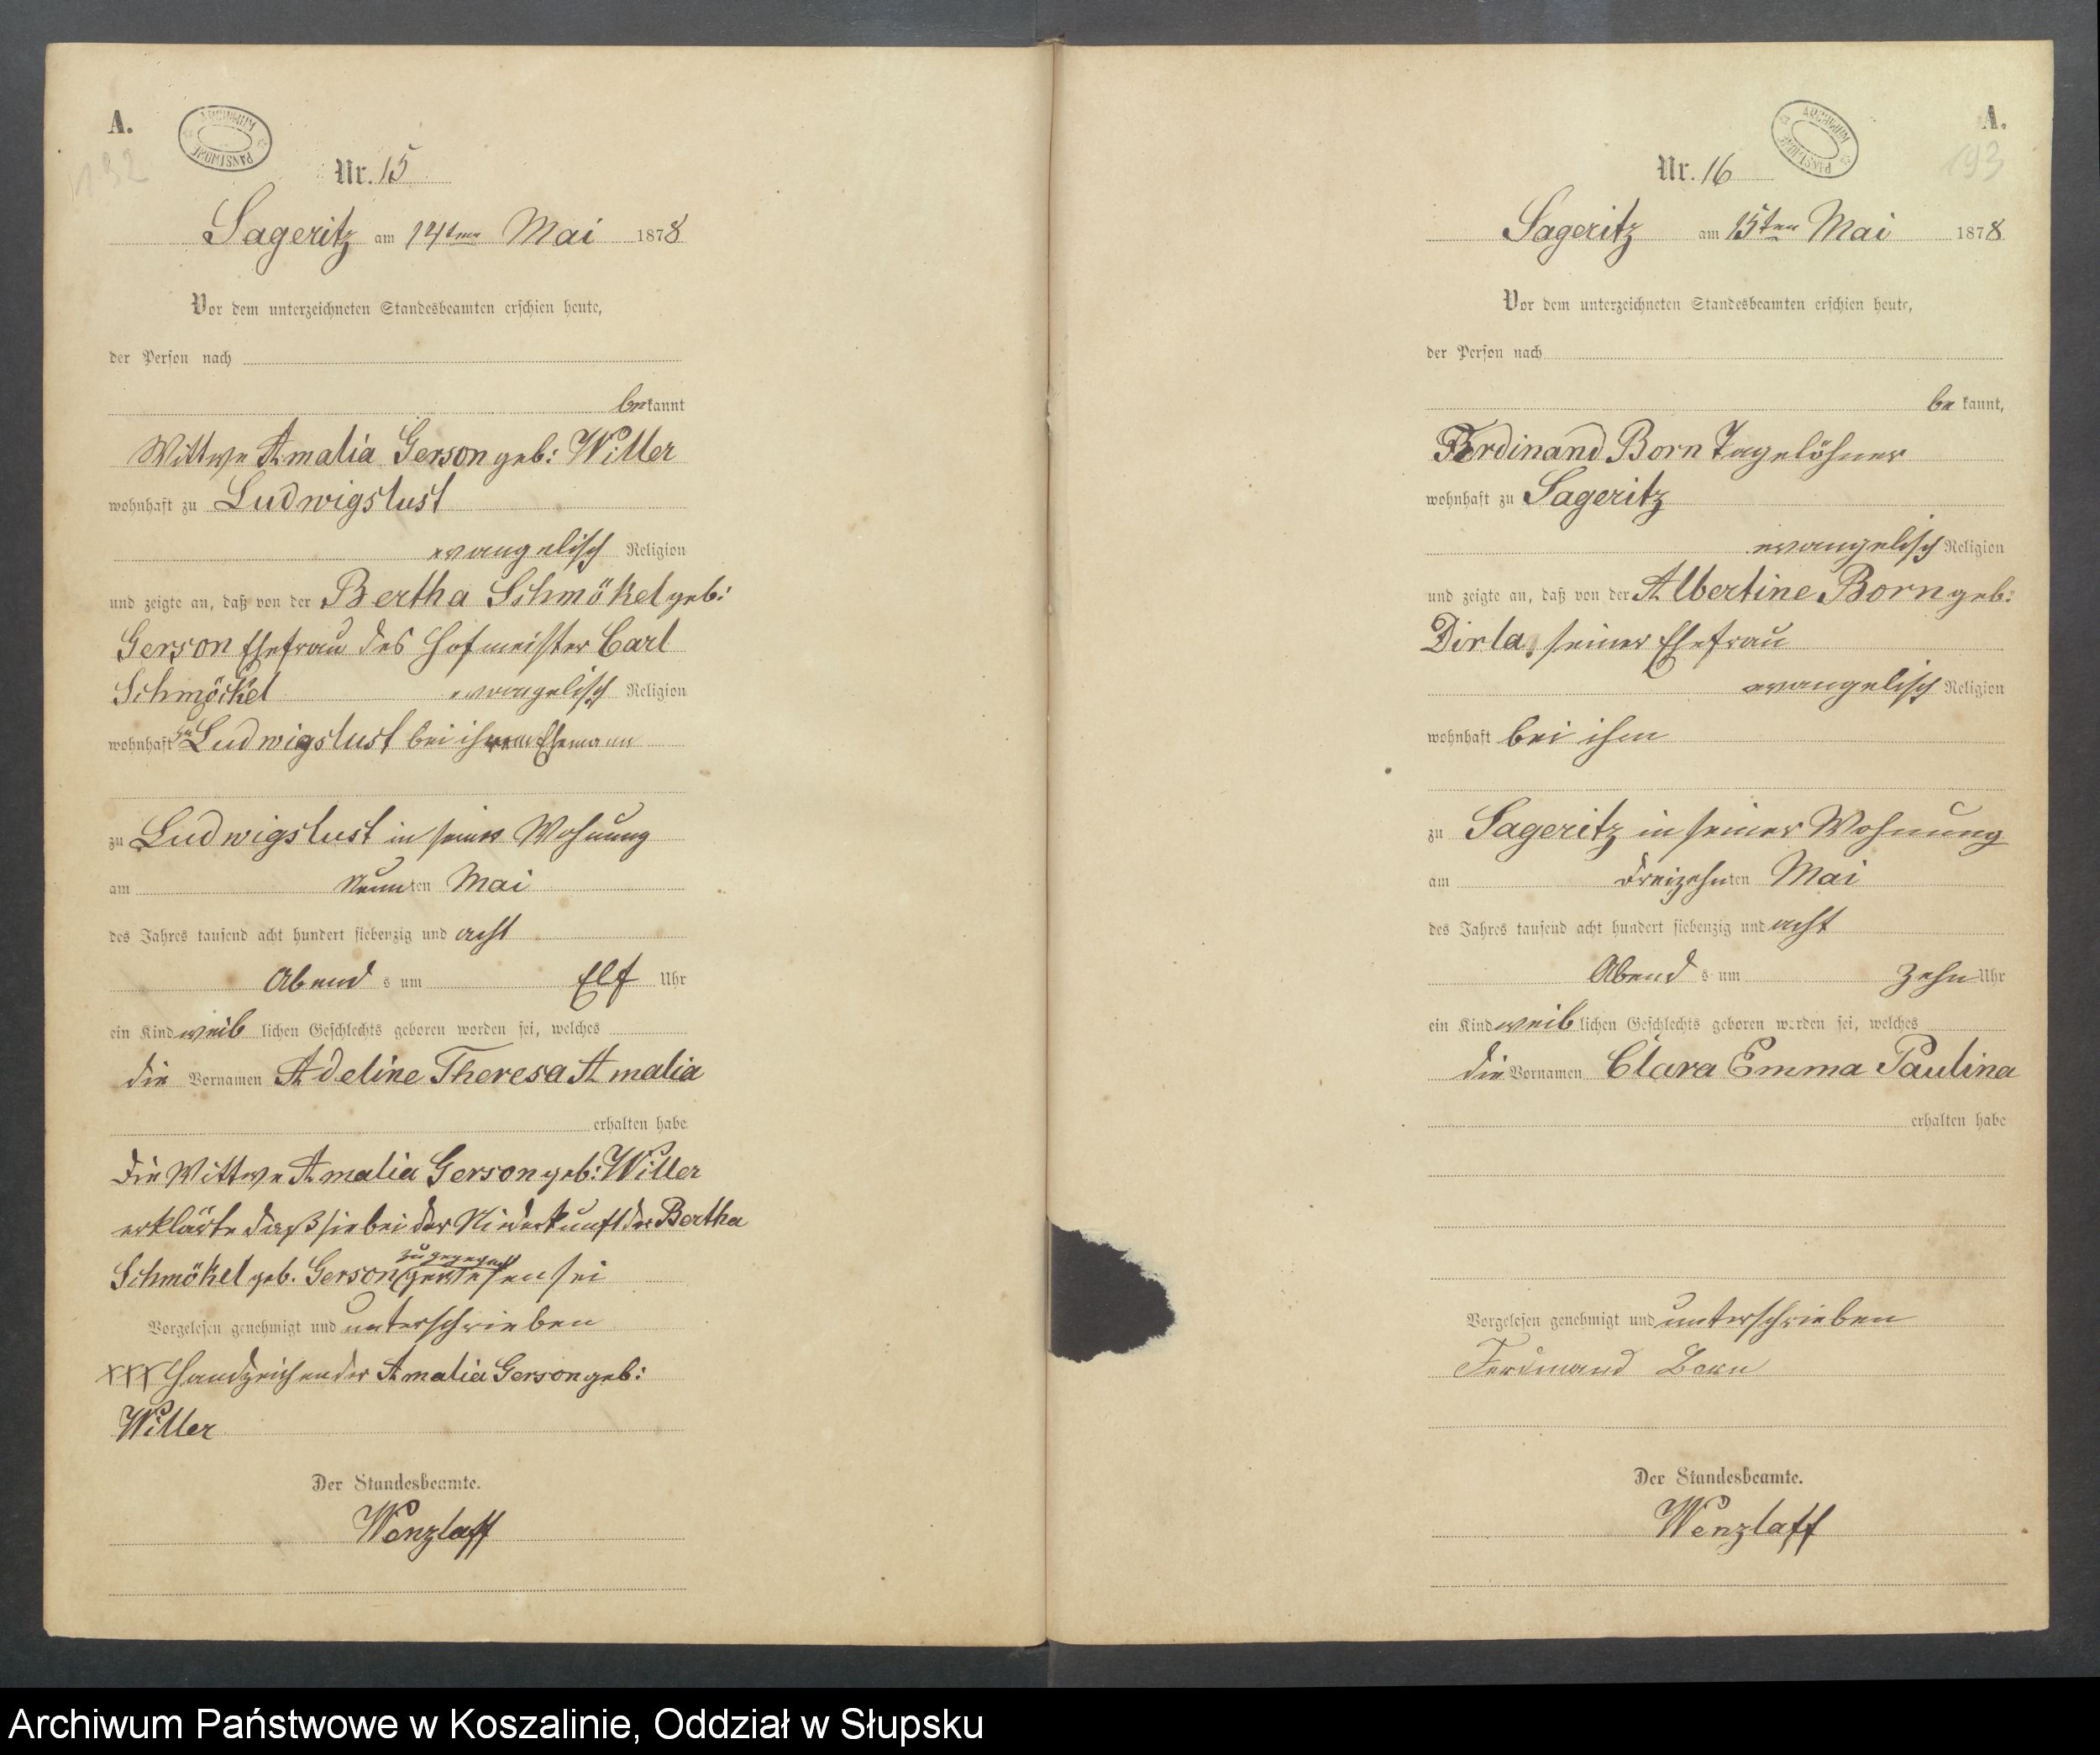 A.
192
ARCHIWUM PAŃSTWOWE
Nr. 15
Sageritz am 14ten Mai 1878
Vor dem unterzeichneten Standesbeamten erschien heute,
der Person nach
bekannt
Wittwe Amalia Gerson geb: Witter
wohnhaft zu Ludwigslust
evangelisch Religion
und zeigte an, daß von der Bertha Schmökel geb:
Gerson Ehefrau des Hofmeister Carl
Schmöckel evangelisch Religion
wohnhaft zu Ludwigslust bei ihrem Ehemann
zu Ludwigslust in seiner Wohnung
am Neunten Mai
des Jahres tausend acht hundert siebenzig und acht
Abends um Elf Uhr
ein Kind weiblichen Geschlechts geboren worden sei, welches
die Vornamen Adeline Theresa Amalia
erhalten habe
Die Wittwe Amalia Gerson geb: Witter
erklärte daß sie bei der Niederkunft der Bertha
zugegen
Schmökel geb. Gerson gewesen sei
Vorgelesen genehmigt und unterschrieben
XXX Handzeichen der Amalia Gerson geb:
Witter
Der Standesbeamte.
Wenzlaff
A.
193
ARCHIWUM PAŃSTWOWE
Nr. 16
Sageritz am 15ten Mai 1878
Vor dem unterzeichneten Standesbeamten erschien heute,
der Person nach
bekannt,
Ferdinand Born Tagelöhner
wohnhaft zu Sageritz
evangelisch Religion
und zeigte an, daß von der Albertine Born geb:
Dirla, seiner Ehefrau
evangelisch Religion
wohnhaft bei ihm
zu Sageritz in seiner Wohnung
am Dreizehnten Mai
des Jahres tausend acht hundert siebenzig und acht
Abends um Zehn Uhr
ein Kind weiblichen Geschlechts geboren worden sei, welches
die Vornamen Clara Emma Paulina
erhalten habe
Vorgelesen genehmigt und unterschrieben
Ferdinand Born
Der Standesbeamte.
Wenzlaff
Archiwum Państwowe w Koszalinie, Oddział w Słupsku